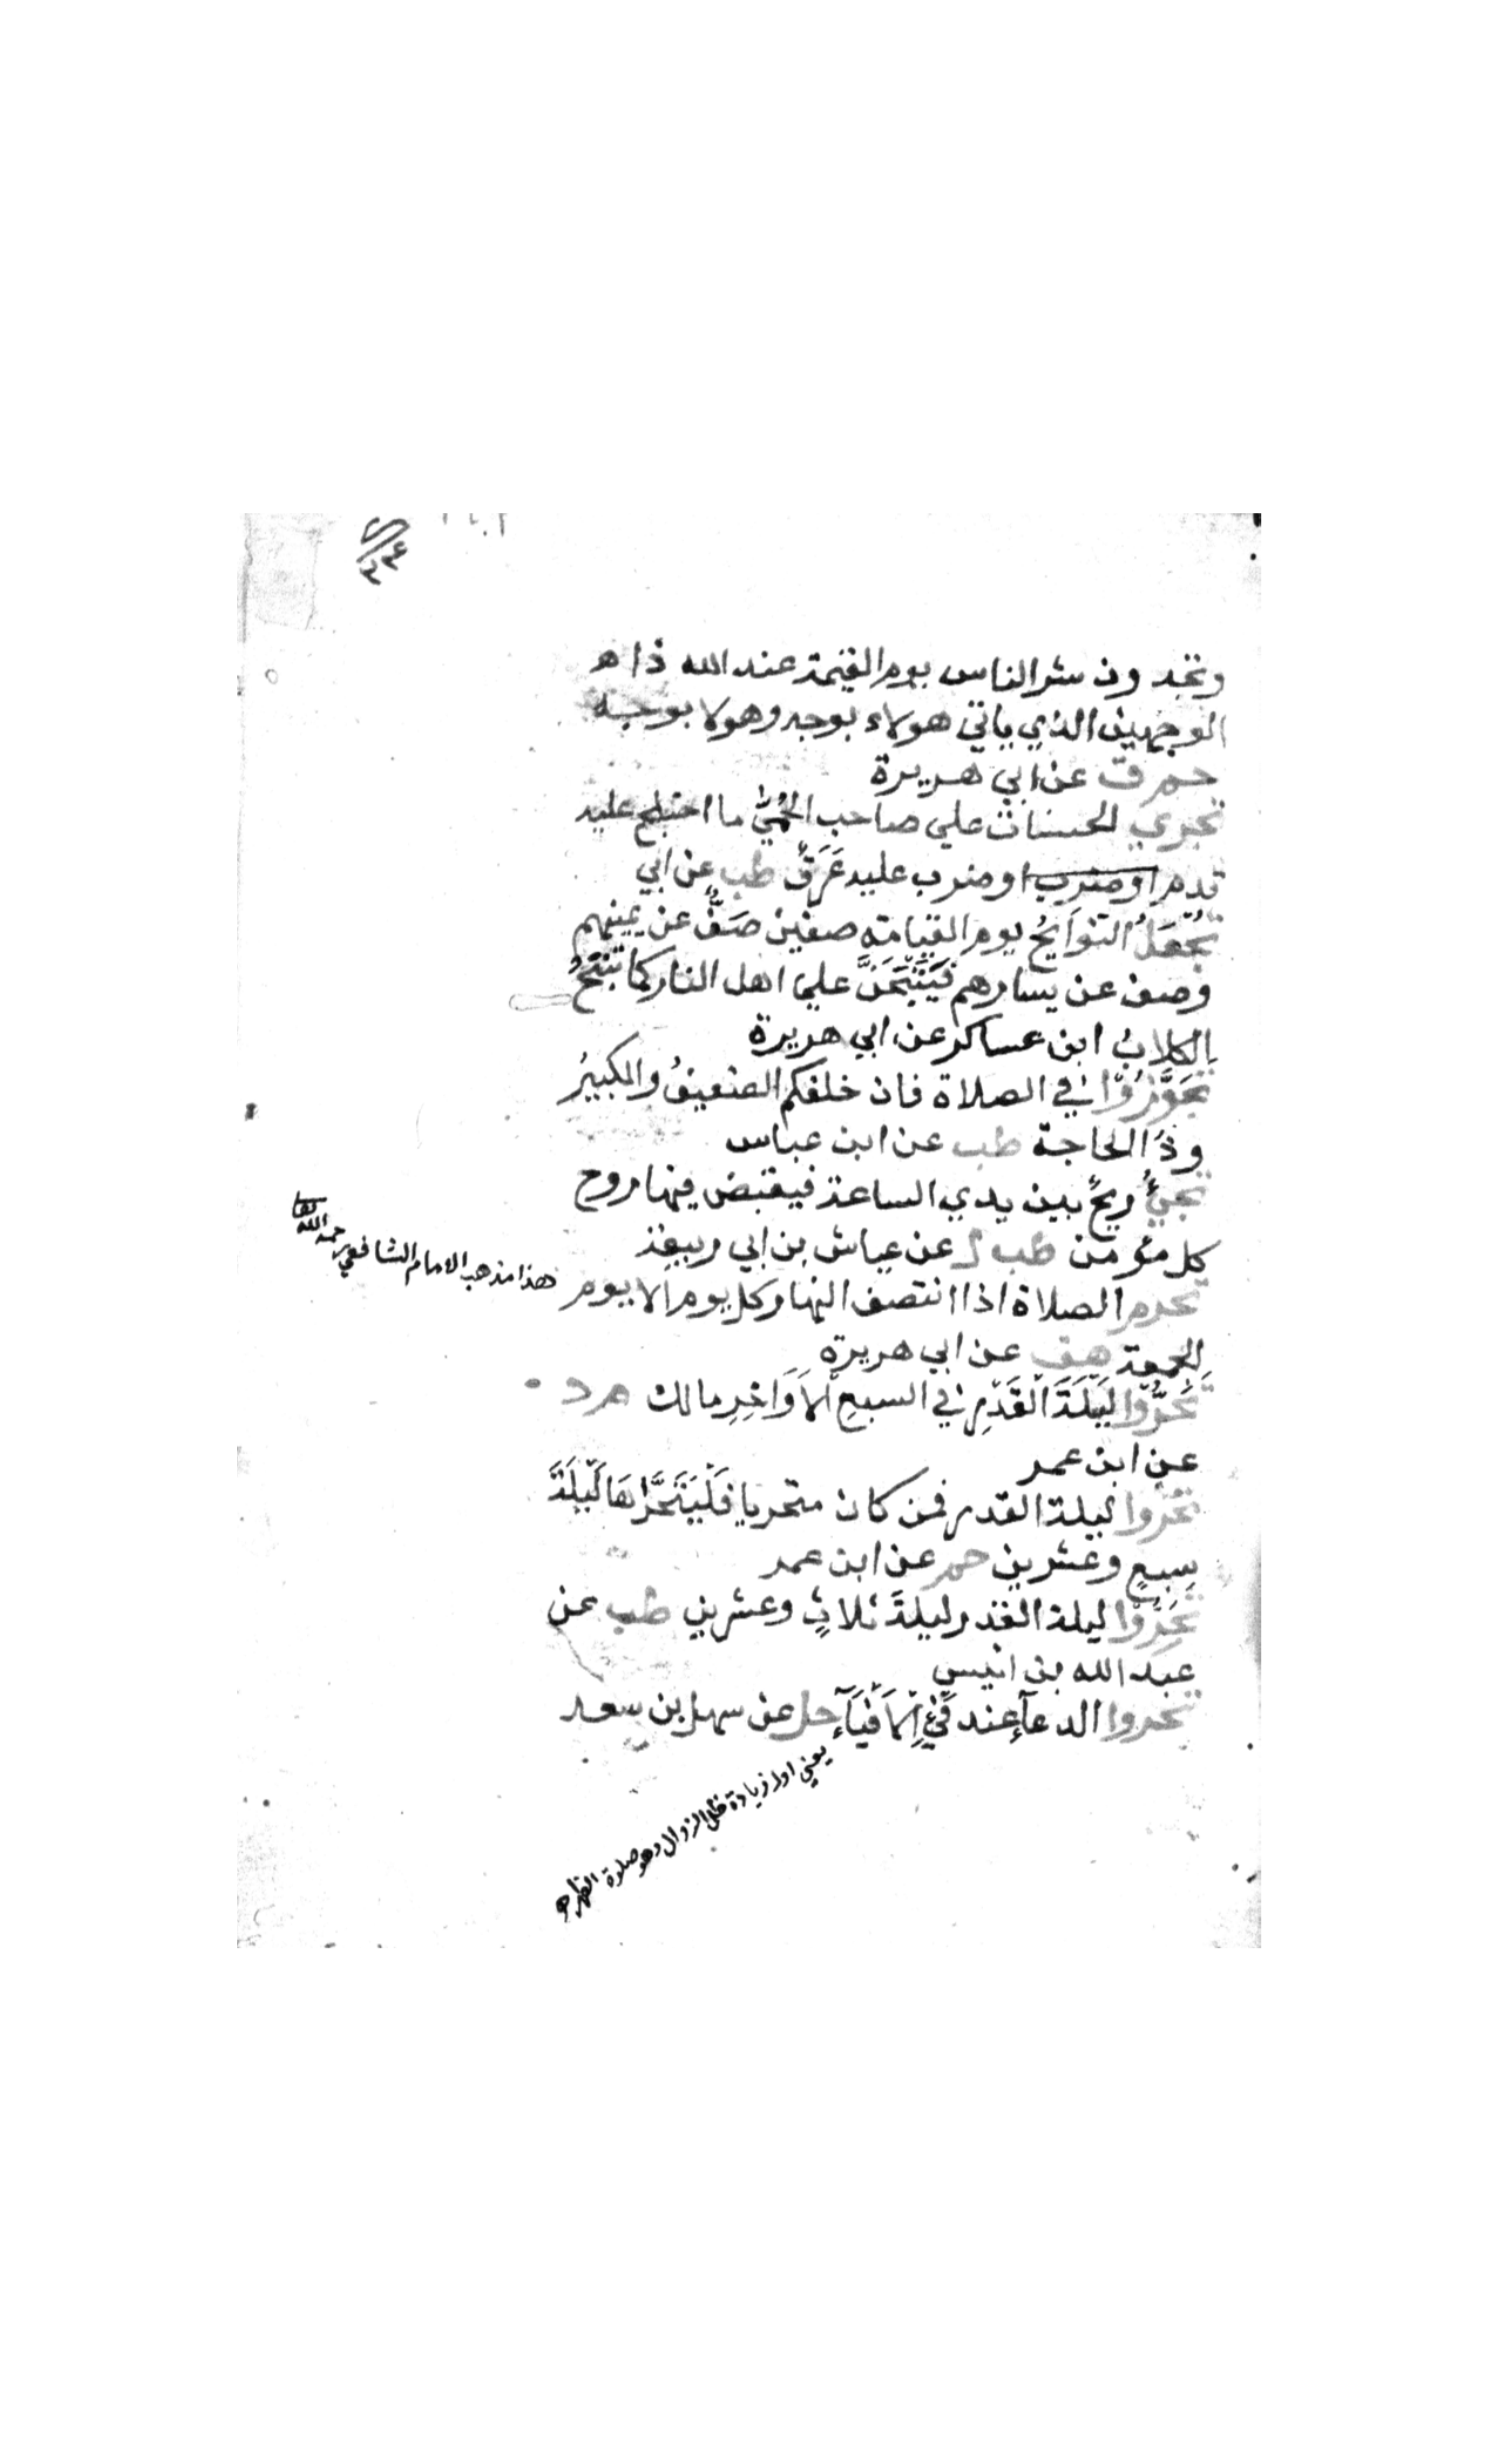 وتجدون شر الناس يوم القيمة عند الله ذا ه
الوجهين الذي ياتي هولاء بوجه وهولا بوجه
حم ق عن ابي هريرة
تجري الحسنات علي صاحب الحُمَّى ما اختلج عليه
قدم او ضرب او ضرب عليه عَرَقٌ طب عن ابي
تُجْعَلُ النَّوَايحُ يوم القيامة صفين صَفٌّ عن يمينهم
وصف عن يسارهم فَيَنْبَحْنَ علي اهل النار كما تَنْبَحُ
الكلابُ ابن عساكر عن ابي هريرة
تَجَوَّزُوْا في الصلاة فان خلفكم الضعيفُ والكبيرُ
وذَ الحاجة طب عن ابن عباس
تَجيُ ريحٌ بين يدي الساعة فيقبض فيها روح
كل مؤمن طب ك عن عياش بن ابي ربيعة
تحرم الصلاة اذا انتصف النهار كل يوم الا يوم
هذا مذهب الامام الشافعي رحمه الله
الجمعة هق عن ابي هريرة
تَحَرَّوْا لَيْلَةَ الْقَدْرِ في السبعِ الْاَوَاخِرِ مالك م د
عن ابن عمر
تحروا ليلة القدر فمن كان متحريا فَلْيَتَحَرَّاهَا لَيْلَةَ
سبعٍ وعشرين حم عن ابن عمر
تَحَرَّوْا ليلة القدر ليلةَ ثلاثٍ وعشرين طب عن
عبد الله بن انيس
تحروا الدعآء عند فَيْءِ الْاَفْيَآءِ حل عن سهل بن سعد
يعني اول زيادة ظل الزوال وهو صلوة الظهر اه